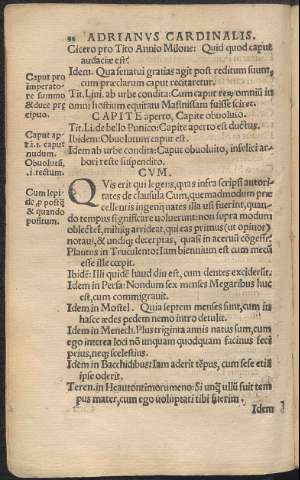 98 ADRIANVS CARDINALIS.
Cicero pro Tito Annio Milone: Quid quod caput
audaciæ est?
Idem. Qua senatui gratias agit post reditum suum,
cum præclarum caput recitaretur.
Tit. Liui. ab urbe condita: Cum caput rerum omniū in
omni hostium equitatu Masinissam fuisse sciret.
CAPITE aperto, Capite obuoluto.
Tit. Li. de bello Punico: Capite aperto est ductus.
Ibidem: Obuolutum caput est.
Idem ab urbe condita: Caput obuoluito, infelici ar-
bori reste suspendito.
CVM.
QVis erit qui legens, quas infra scripsi autori-
tates de clausula Cum, quemadmodum præ
cellentis ingenij uates illa usi fuerint, quan-
do tempus significare uoluerunt: non supra modum
oblectet, mihiq; arrideat, qui eas primus (ut opinor)
notaui, & undiq; decerptas, quasi in aceruū cōgesse?
Plautus in Truculento: Iam biennium est cum mecū
esse ille cœpit.
Ibidē: Illi quidē haud diu est, cum dentes exciderūt.
Idem in Persa: Nondum sex menses Megaribus huc
est, cum commigrauit.
Idem in Mostel. Quia septem menses sunt, cum in
hasce ædes pedem nemo intro detulit.
Idem in Menech. Plus triginta annis natus sum, cum
ego interea loci nō unquam quodquam facinus feci
peius, neq; scelestius.
Idem in Bacchidibus: Iam aderit tēpus, cum sese etiā
ipse oderit.
Teren. in Heautontimorumeno: Si unq̄ ullū fuit tem
pus mater, cum ego uoluptati tibi fuerim.
Idem
Caput pro
imperato-
re summo
& duce præ
cipuo.
Caput ap
t. i. caput
nudum.
Obuolutū,
.i. tectum.
Cum lepi-
de, p postq̄
& quando
positum.